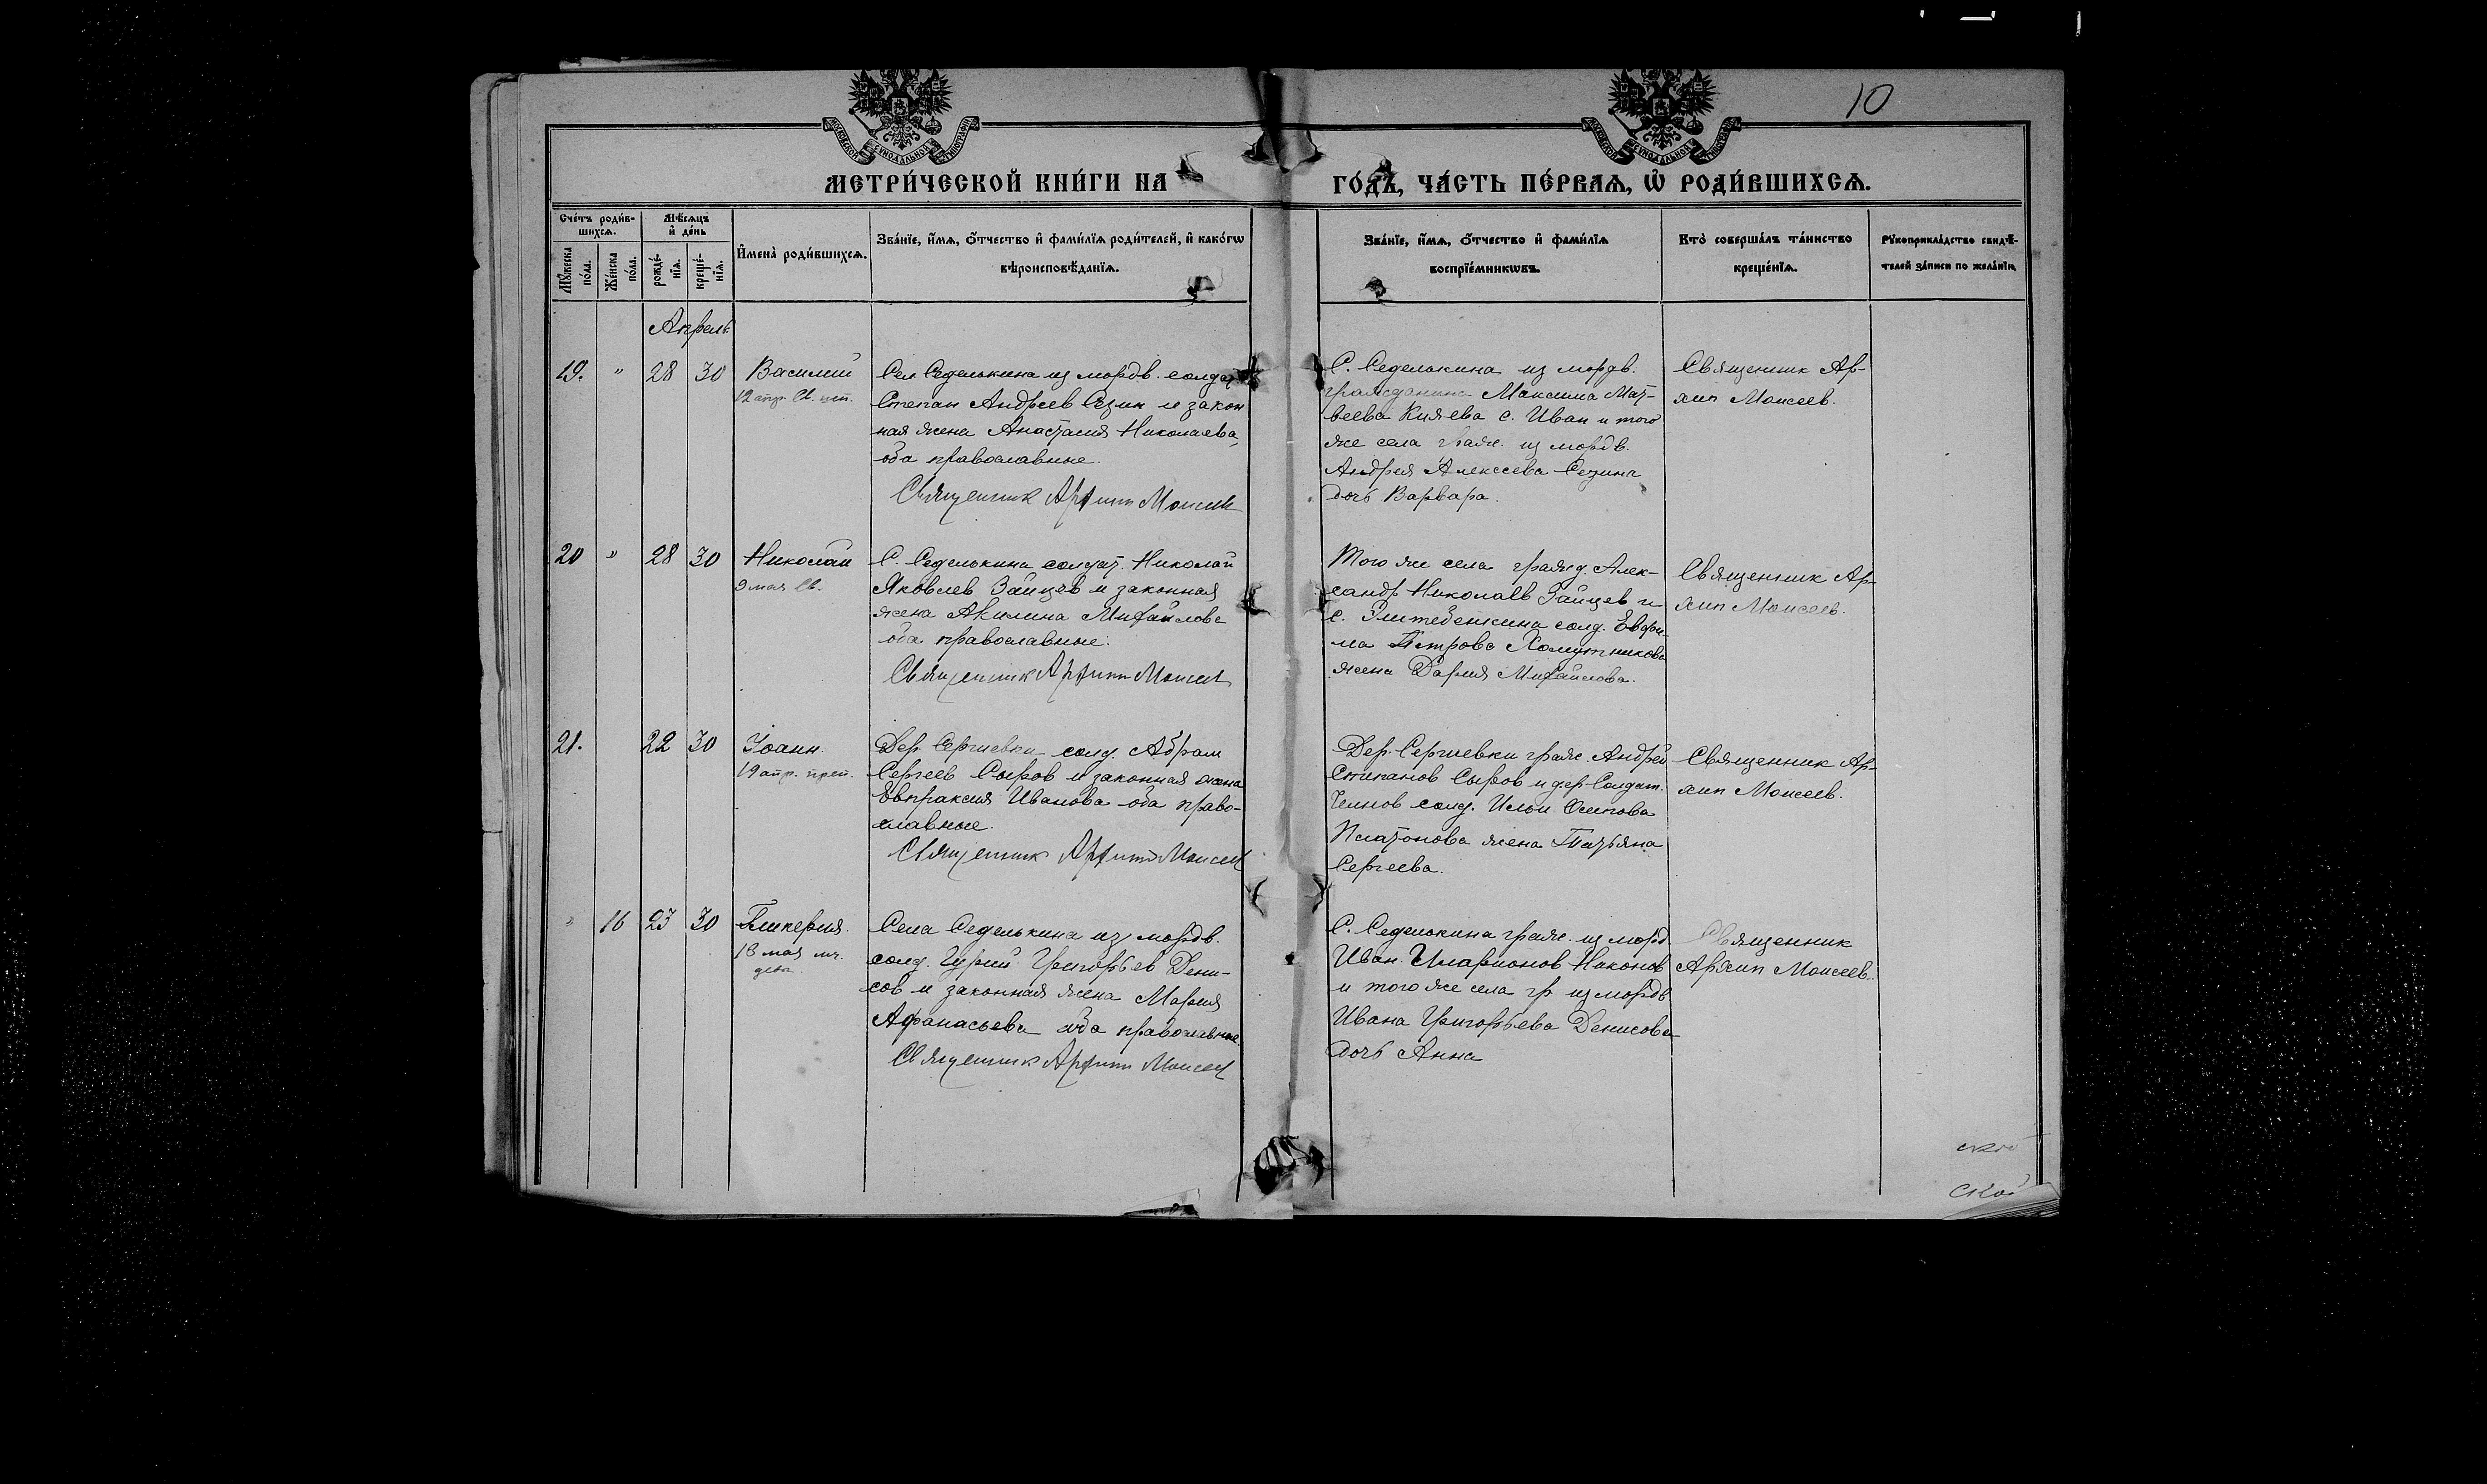 10
МОСКОВСКОЙ СѴНОДАЛЬНОЙ ТИПОГРАФІИ
МОСКОВСКОЙ СѴНОДАЛЬНОЙ ТИПОГРАФІИ
МЕТРИ́ЧЕСКОЙ КНИ́ГИ НА ГО́ДЪ, ЧА́СТЬ ПЕ́РВАЯ, Ѡ҆ РОДИ́ВШИХСЯ.
Сче́тъ роди́в-
шихся.
Мꙋ́жеска
по́ла.
Же́нска
по́ла.
Мѣ́сяцъ
и҆ де́нь
рожде́-
нїя.
креще́-
нїя.
И҆мена̀ роди́вшихся.
Зва́нїе, и҆́мя, ѻ҆́тчество и҆ фами́лїя роди́телей, и҆ како́гѡ
вѣроисповѣ́данїя.
Зва́нїе, и҆́мя, ѻ҆́тчество и҆ фами́лїя
воспрїе́мникѡвъ.
Кто̀ соверша́лъ та́инство
креще́нїя.
Рꙋкоприкла́дство свидѣ́-
телей за́писи по жела́нїю.
Апрель
19. " 28 30 Василий
12 апр. Св.
Сел Седелькина из мордв. солдат
Степан Андреев Сезин и закон
ная жена Анастасия Николаева,
оба православные.
Священник Архипп Моисеев
С. Седелькина из мордв.
гражданина Максима Мат-
веева Князева с. Иван и того
же села гражд. из мордв.
Андрея Алексеева Сезина
дочь Варвара.
Священник Ар-
хип Моисеев.
20 " 28 30 Николай
9 мая Св.
С. Седелькина солдат. Николай
Яковлев Зайцев и законная
жена Акилина Михайлова
оба православные.
Священник Архипп Моисеев
Того же села гражд. Алек-
сандр Николаев Зайцев и
с. солд. Евфи-
ма Петрова Хомутникова
жена Дария Михайлова.
Священник Ар-
хип Моисеев.
21. 22 30 Иоанн.
19 апр. преп.
Дер. Сергиевки солд. Абрам
Сергеев Сыров и законная жена
Евпраксия Иванова оба право-
славные.
Священник Архипп Моисеев
Дер. Сергиевки граж. Андрей
Степанов Сыров и дер. Солдат.
солд. Ильи Осипова
Платонова жена Татьяна
Сергеева.
Священник Ар-
хип Моисеев.
" 16 23 30 Гликерия.
13 мая мч.
дева
Села Седелькина из мордв.
солд. Гурий Григорьев Дени-
сов и законная жена Мария
Афанасьева оба православные.
Священник Архипп Моисеев
С. Седелькина граж. из мордв
Иван Иларионов Никонов
и того же села гр. из мордв
Ивана Григорьева Денисова
дочь Анна
Священник
Архип Моисеев.
ской